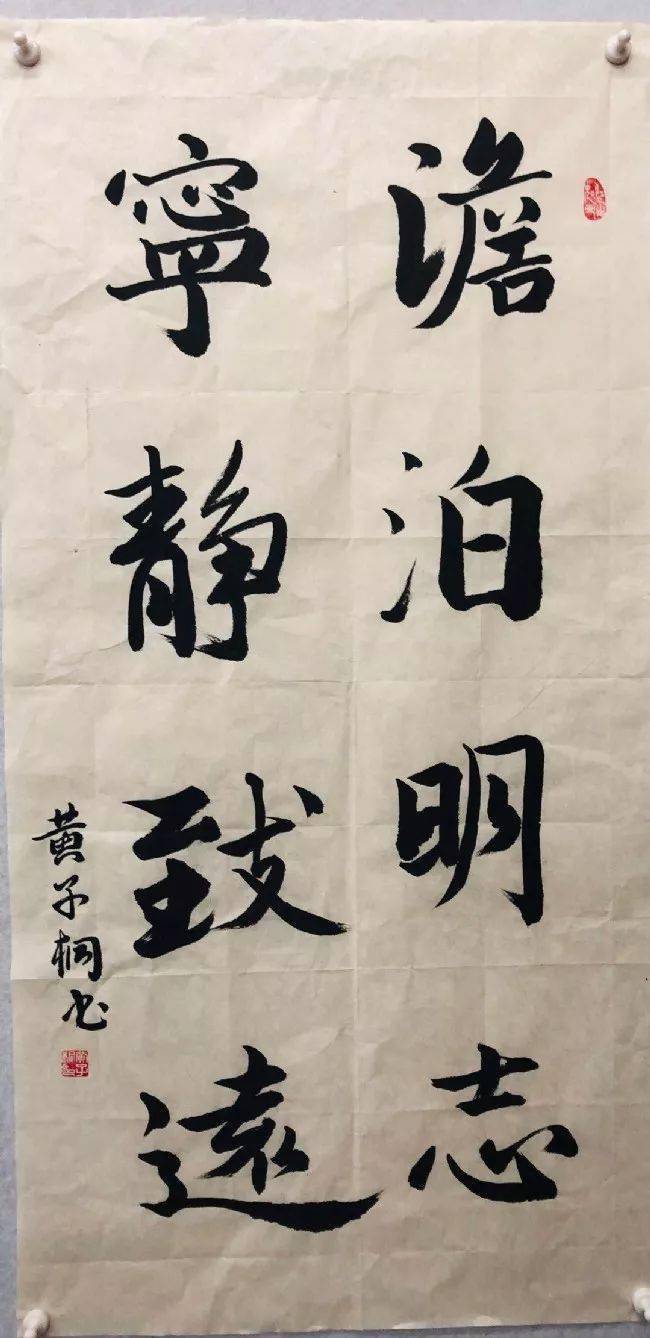 澹泊明志
寧靜致遠
黄子桐书